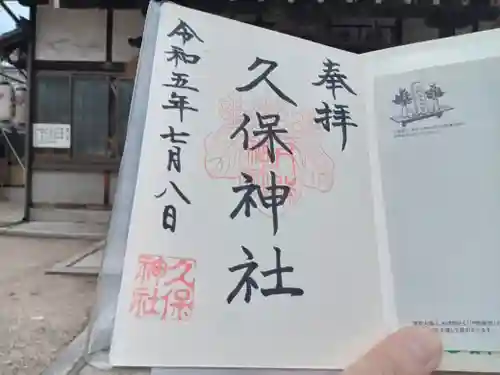 奉拝
久保神社
令和五年七月八日
久保
神社